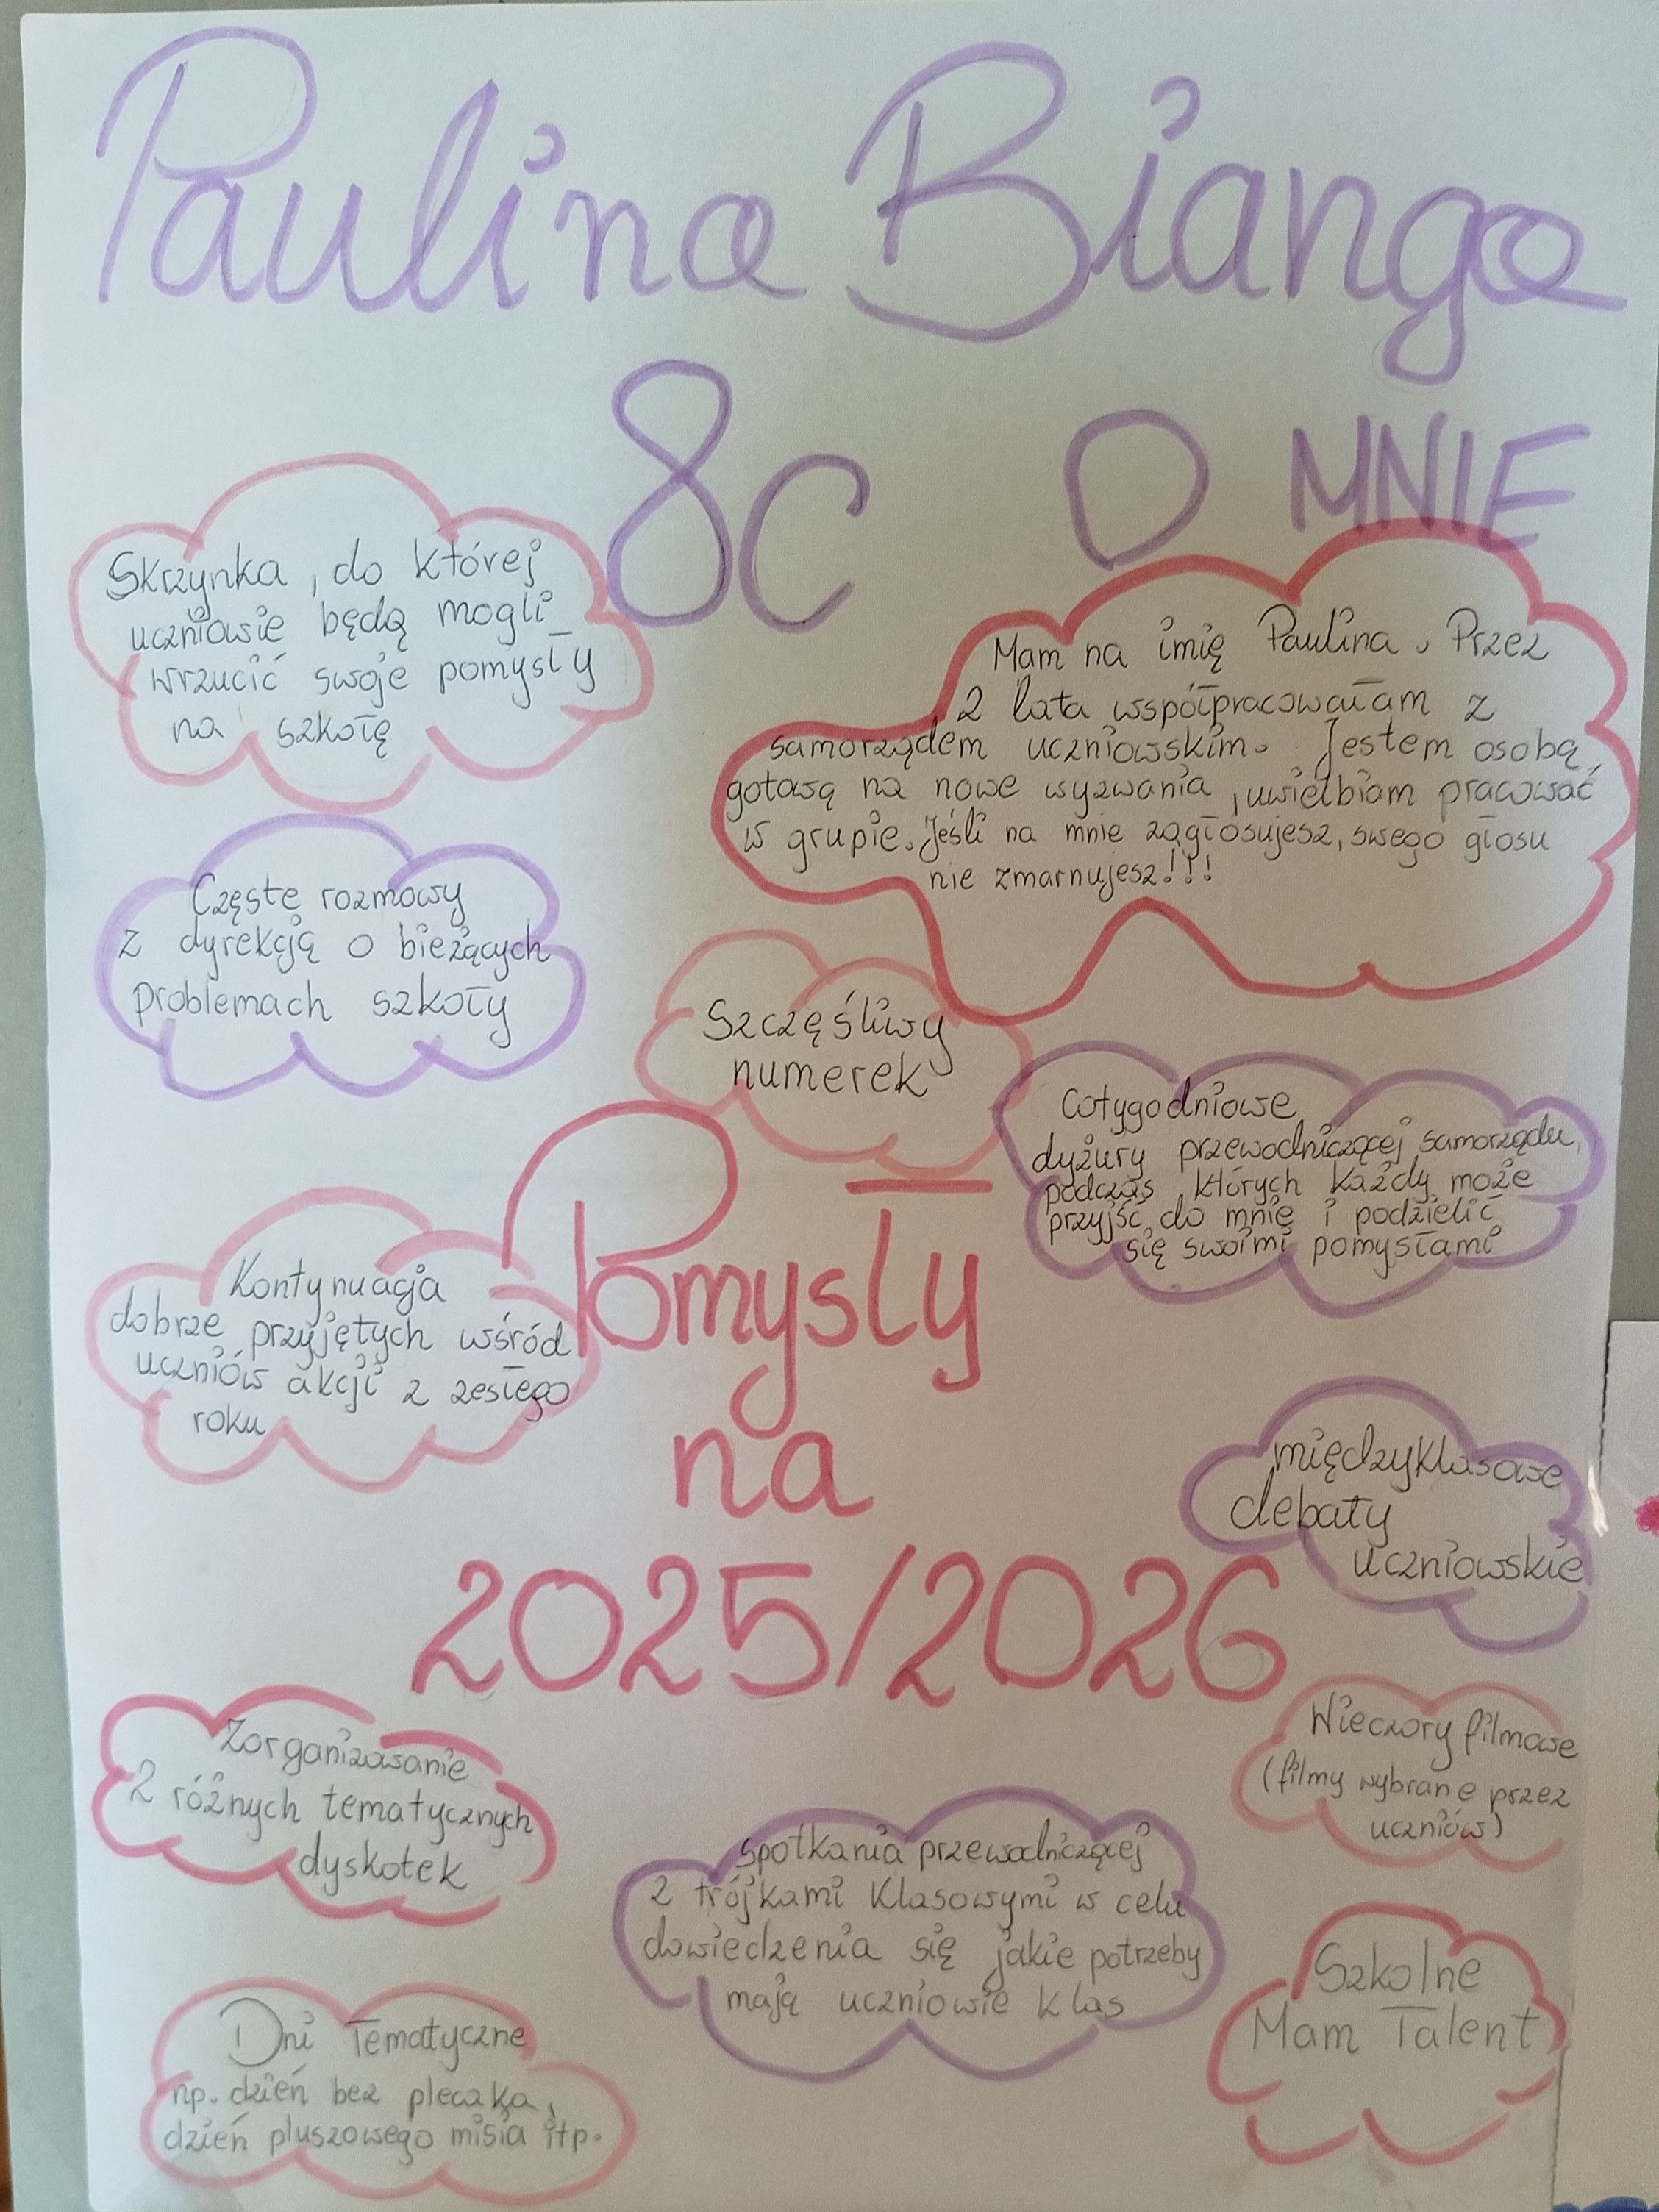 Paulina Bianga
8c
O MNIE
Skrzynka, do której
uczniowie będą mogli
wrzucić swoje pomysły
na szkołę
Mam na imię Paulina. Przez
2 lata współpracowałam z
samorządem uczniowskim. Jestem osobą
gotową na nowe wyzwania, uwielbiam pracować
w grupie. Jeśli na mnie zagłosujesz, swego głosu
nie zmarnujesz!!!
Częste rozmowy
z dyrekcją o bieżących
problemach szkoły
Szczęśliwy
numerek
Cotygodniowe
dyżury przewodniczącej samorządu,
podczas których każdy może
przyjść do mnie i podzielić
się swoimi pomysłami
Kontynuacja
dobrze przyjętych wśród
uczniów akcji z zesłego
roku
Pomysły
na
2025/2026
międzyklasowe
debaty
uczniowskie
Zorganizowanie
2 różnych tematycznych
dyskotek
Wieczory filmowe
(filmy wybrane przez
uczniów)
spotkania przewodniczącej
z trójkami klasowymi w celu
dowiedzenia się jakie potrzeby
mają uczniowie klas
Szkolne
Mam Talent
Dni Tematyczne
np. dzień bez plecaka,
dzień pluszowego misia itp.